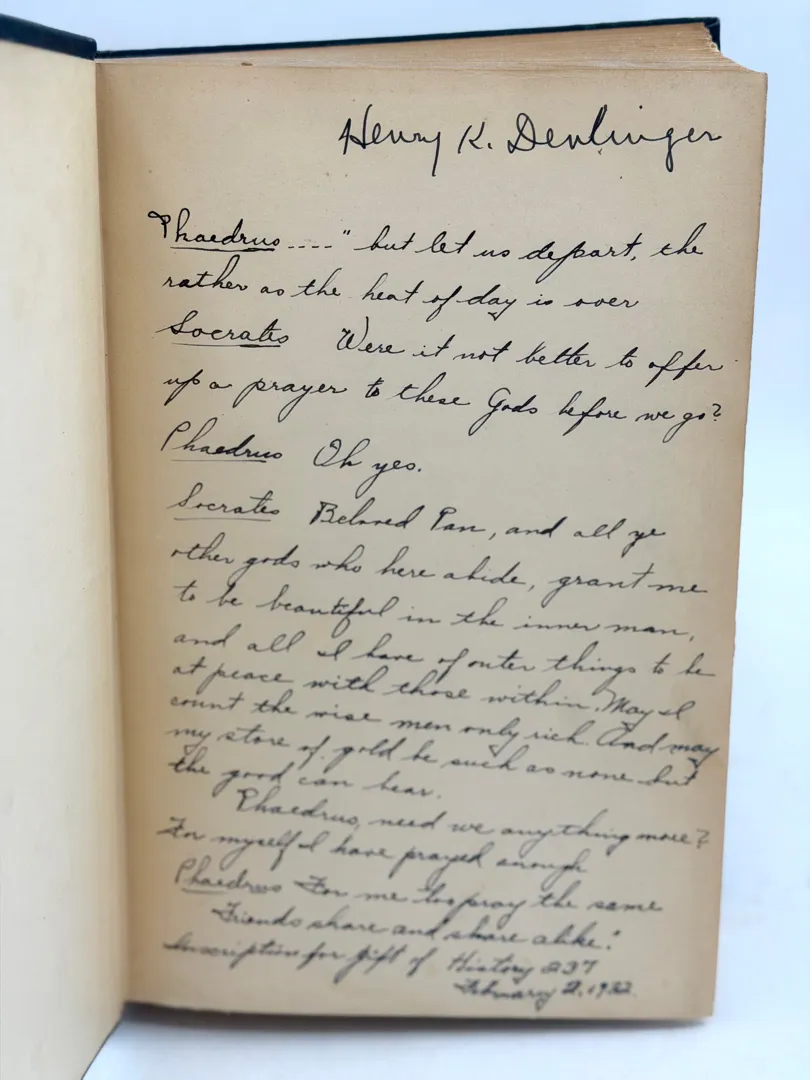 Henry K. Denlinger
Phaedrus ...." but let us depart, the
rather as the heat of day is over
Socrates Were it not better to offer
up a prayer to these Gods before we go?
Phaedrus Oh yes.
Socrates Beloved Pan, and all ye
other gods who here abide, grant me
to be beautiful in the inner man,
and all I have of outer things to be
at peace with those within. May I
count the wise men only rich. And may
my store of gold be such as none but
the good can bear.
Phaedrus, need we anything more?
For myself I have prayed enough
Phaedrus For me too pray the same
Friends share and share alike."
Inscription for gift of History 237
February 2, 1932.